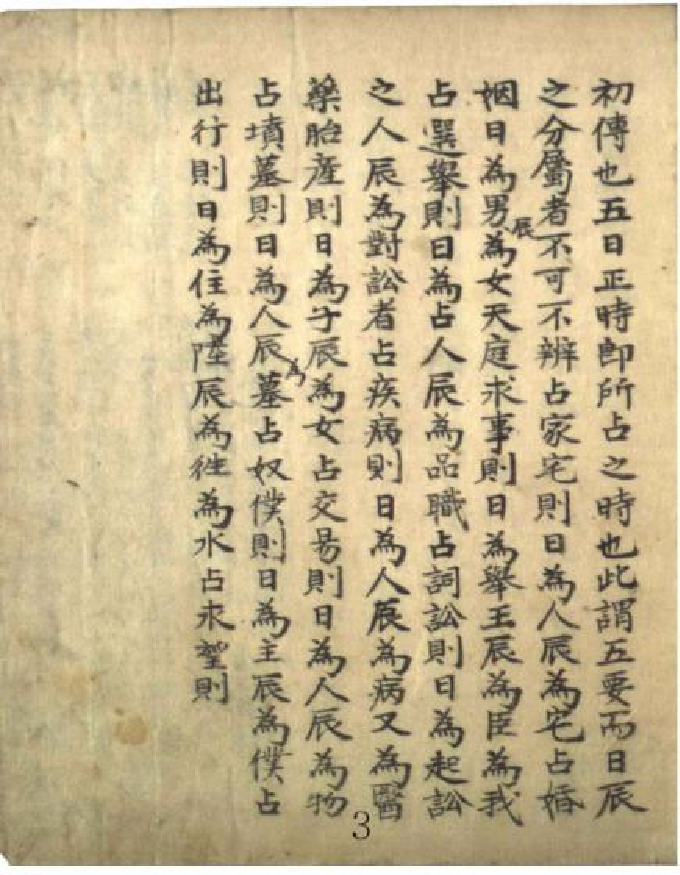 初傳也五日正時即所占之時也此謂五要而日辰
之分屬者不可不辨占家宅則日為人辰為宅占婚
姻日為男辰為女天庭求事則日為舉王辰為臣為我
占選舉則日為占人辰為品職占詞訟則日為起訟
之人辰為對訟者占疾病則日為人辰為病又為醫
藥胎產則日為子辰為女占交易則日為人辰為物
占墳墓則日為人辰為墓占奴僕則日為主辰為僕占
出行則日為住為陸辰為徃為水占求望則
3